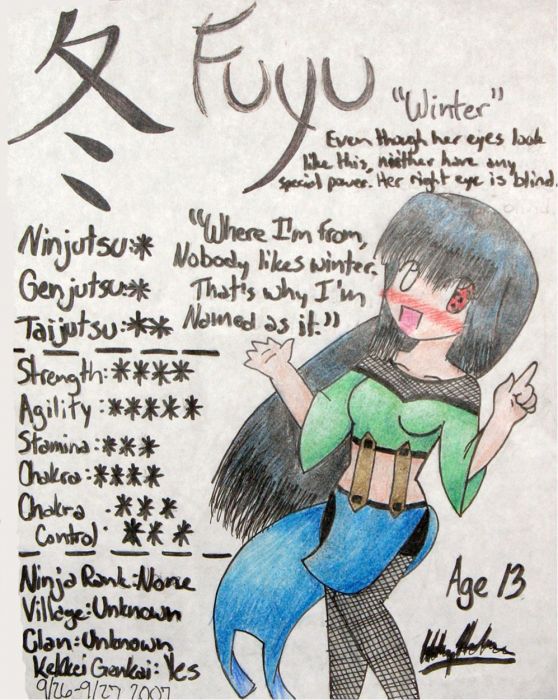 冬
Fuyu
"Winter"
Even though her eyes look
like this, neither have any
special power. Her right eye is blind.
"Where I'm from,
Nobody likes winter.
That's why I'm
Named as it."
Ninjutsu:*
Genjutsu:*
Taijutsu:**
Strength:****
Agility:*****
Stamina:***
Chakra:****
Chakra ***
Control ***
Ninja Rank:None
Village:Unknown
Clan:Unknown
Kekkei Genkai:Yes
9/26-9/27 2007
Age 13